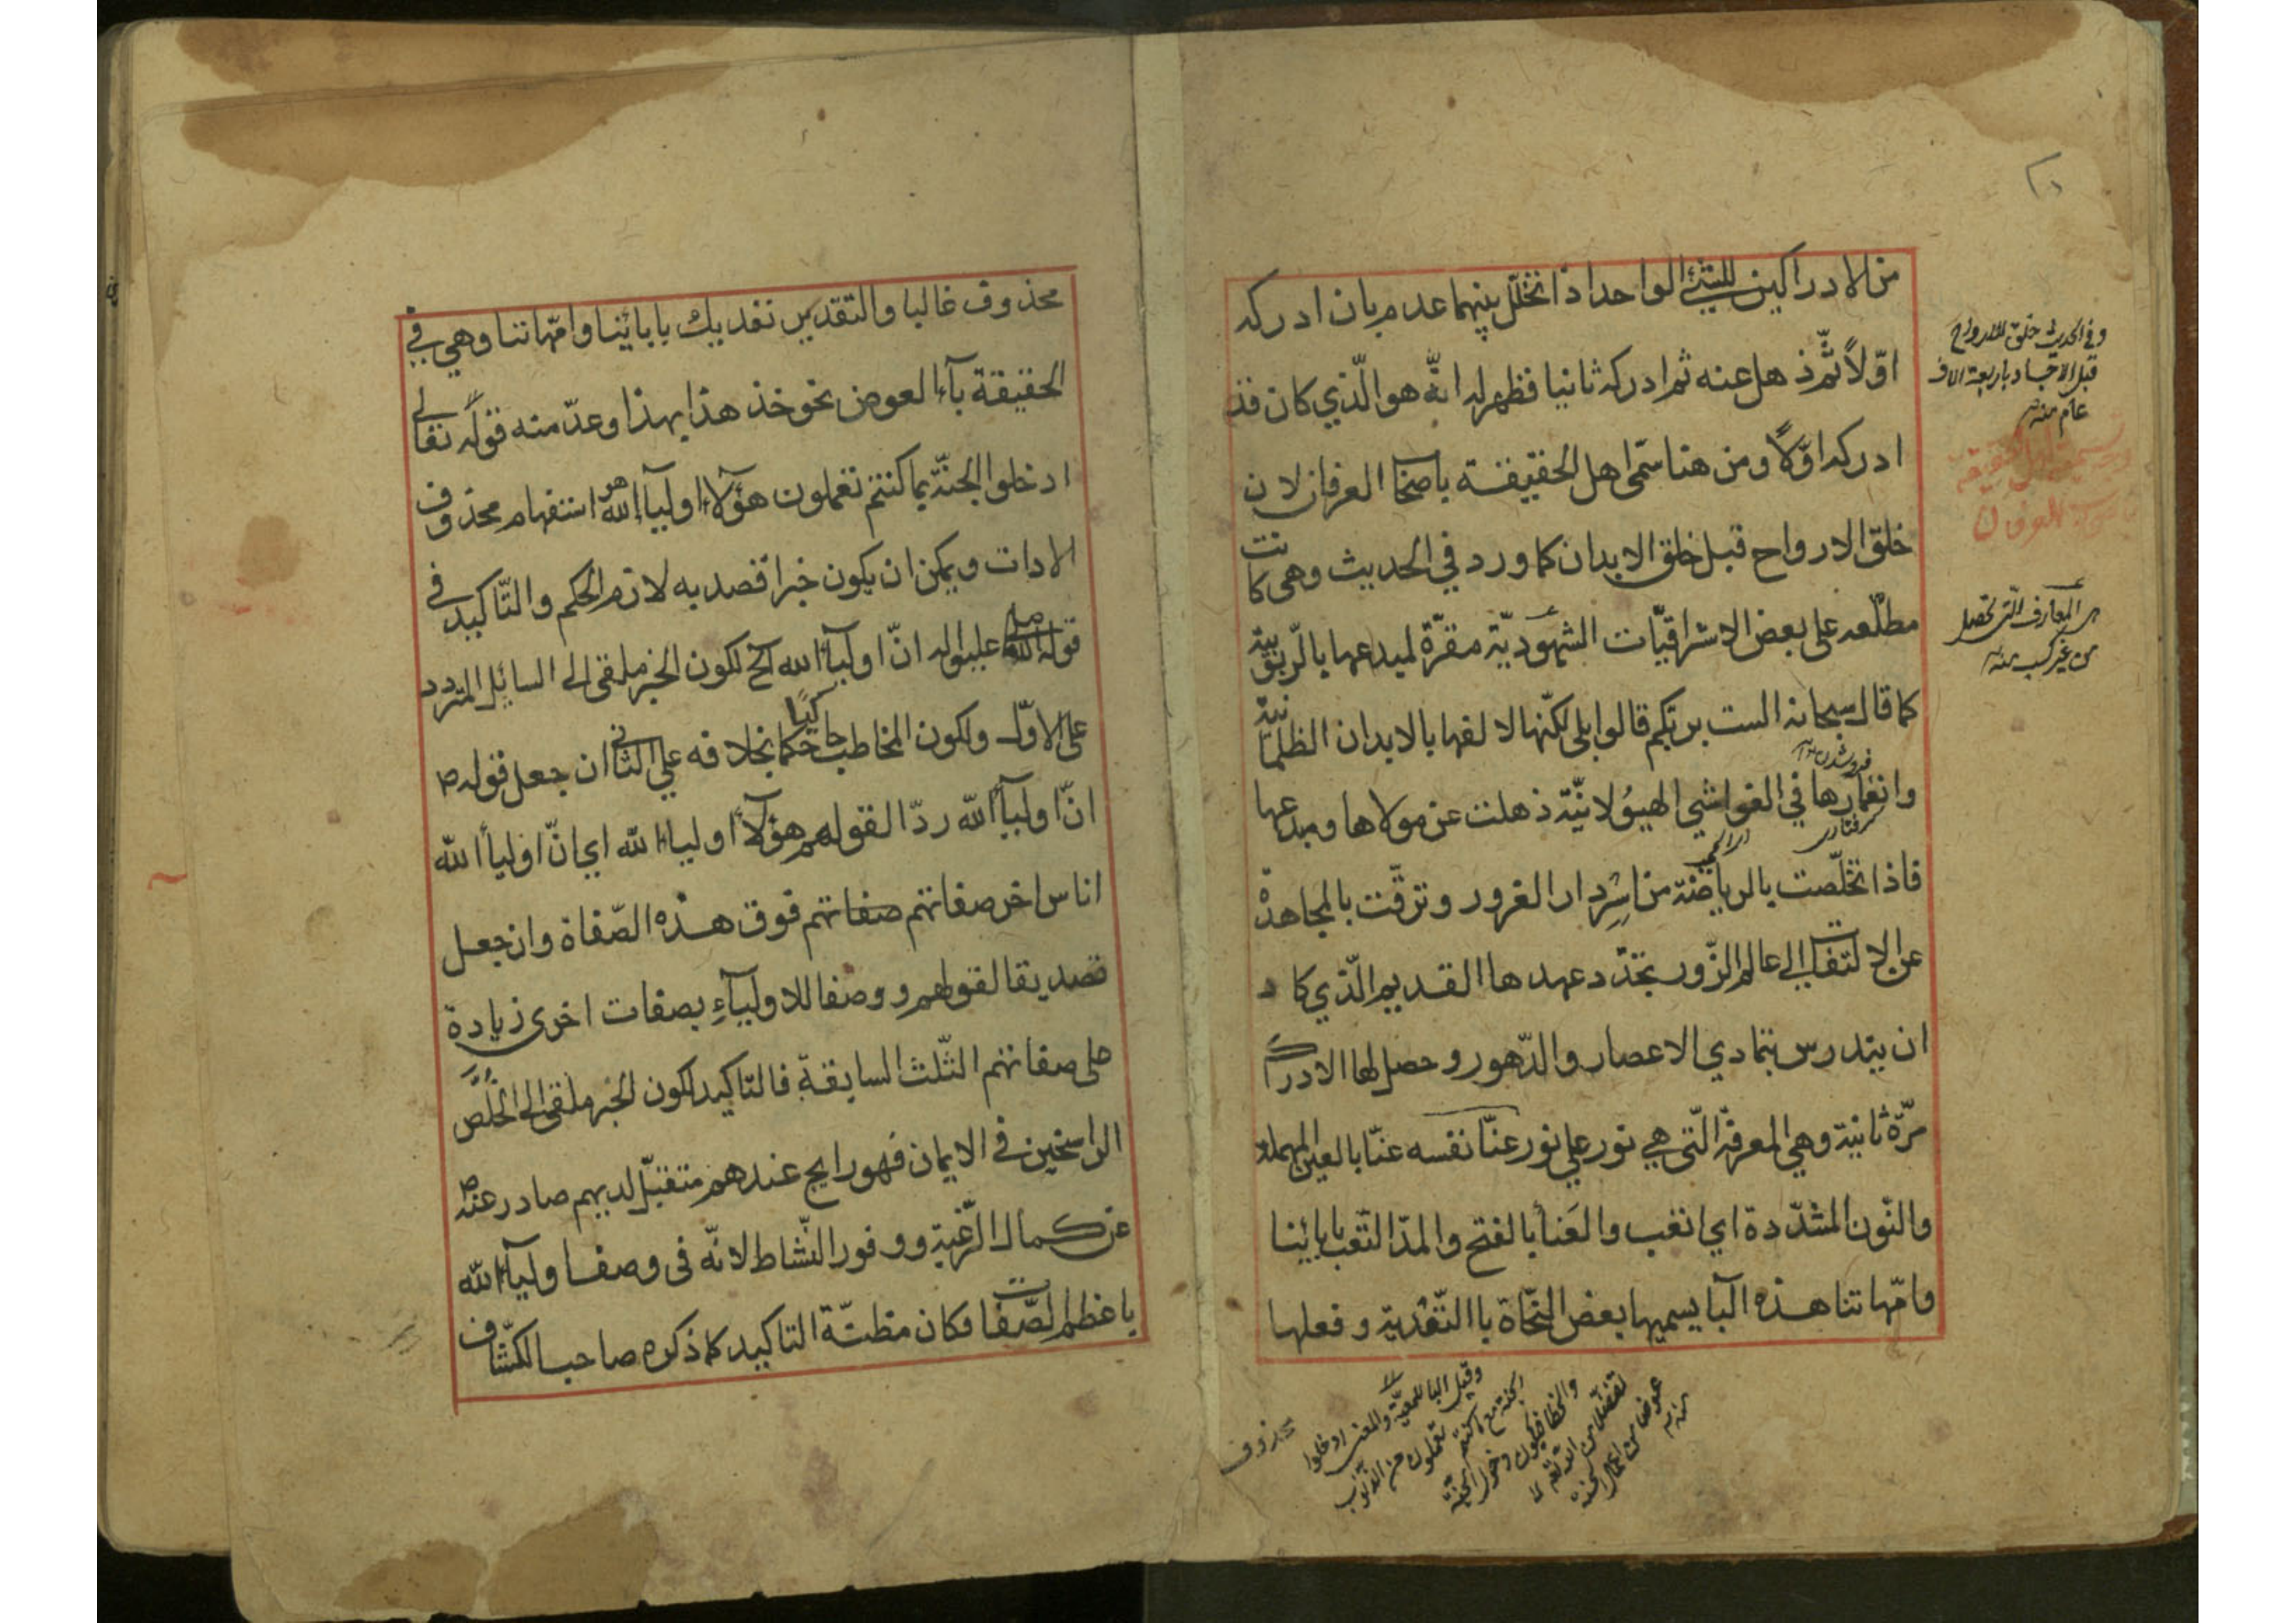 من الادراكين للشيئ الواحد اذا تخلّل بينهما عدم بان ادركه
اوّلاً ثمّ ذهل عنه ثم ادركه ثانيا فظهر له انّه هو الّذي كان قد
ادركه اوّلاً ومن هنا سمّى اهل الحقيقة باصحاب العرفان لان
خلق الارواح قبل خلق الابدان كما ورد في الحديث وهى كانت
مطلّعه على بعض الاشراقيّات الشهوديّة مقرّة لمبدعها بالرّبوبيّة
كما قال سبحانه الست بربكم قالوا بلى لكنّها لالفها بالابدان الظلمانية
وانغمارها في الغواشي الهيولانيّة ذهلت عن مولاها ومبدعها
فاذا تخلّصت بالرياضة من اسر دار الغرور وترقّت بالمجاهدة
عن الالتفات الى عالم الزّور تجدّد عهدها القديم الّذي كاد
ان يندرس بتمادي الاعصار والدّهور وحصل لها الادراك
مرّة ثانية وهي المعرفة الّتى هي نور على نور عنّا نفسه عنّا بالعين المهملة
والنّون المشدّدة اي اتعب والعَنأ بالفتح والمدّ التّعب بابائنا
وامّهاتنا هذه البآ يسميها بعض النّحاة باالتّفْدية وفعلها
وفي الحديث خلق الله الارواح
قبل الاجساد باربعة الاف
عام منه
العرفان
هى المعارف الّتى تحصل
من غير كسب منه
وقيل البا للمعيّة والمعنى ادخلوا
الجنة مع ما كنتم تعملون من الذّنوب
والخطا فيكون دخول الجنّة
تفضّلا من اللّه تعالى لا
عوضا عن اعمال الحسنة
منه
محذوف
محذوف غالبا والتقدير نفديك بابائنا وامّهاتنا وهي في
الحقيقة بآء العوض نحو خذ هذا بهذا وعدّ منه قوله تعالى
ادخلوا الجنّة بما كنتم تعملون هؤلآء اوليآء اللّه هو استفهام محذوف
الادات ويمكن ان يكون خبرا قصد به لازم الحكم والتّاكيد في
قوله صلى اللّه عليه واله انّ اوليآء اللّه الخ لكون الخبر ملقى الى السايل المتردد
على الاوّل ولكون المخاطب حاكما بخلافه على الثاني ان جعل قوله ص
انّ اوليآء اللّه ردّا لقولهم هؤلآء اولياء اللّه اي انّ اوليأ اللّه
اناس اخر صفاتهم صفاتهم فوق هذه الصّفاة وان جعل
تصديقا لقولهم ووصفا للاوليآءِ بصفات اخرى زيادة
على صفاتهم الثّلث السابقة فالتاكيد لكون الخبر ملقى الى الخُلّص
الراسخين في الايمان فهو رايج عندهم متقبّل لديهم صادر عنه ص
عن كمال الرّغبة ووفور النّشاط لانّه فى وصف اوليآء اللّه
باعظم الصّفات فكان مظنّة التاكيد كما ذكره صاحب الكشّاف